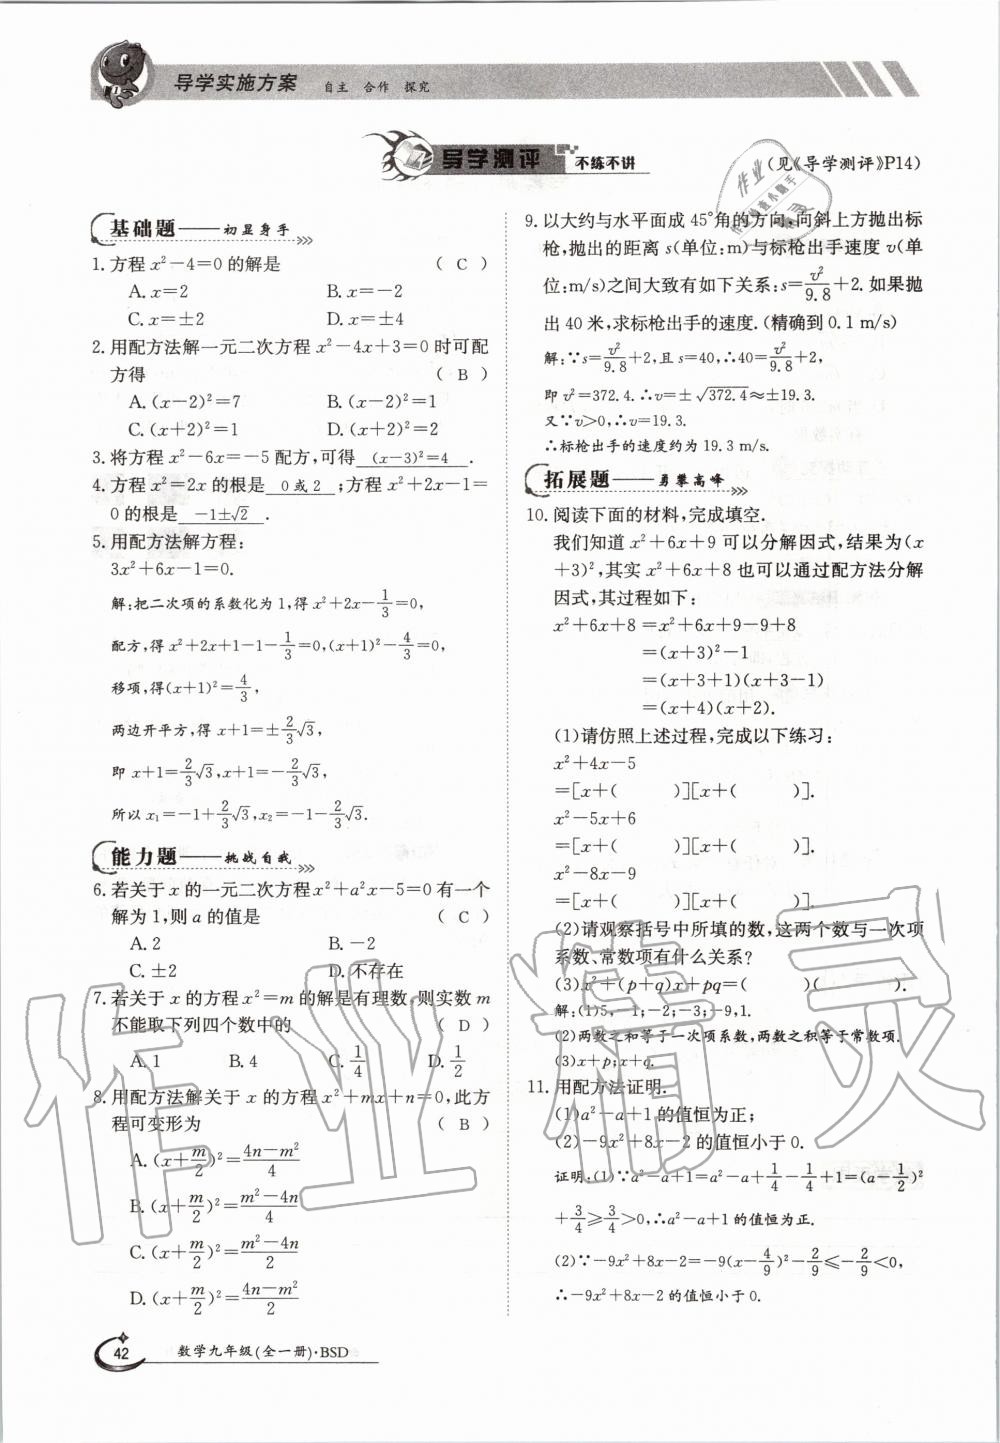 导学实施方案 自主 合作 探究
导学测评 不练不讲
(见《导学测评》P14)
基础题——初显身手
1.方程 x²-4=0 的解是 ( C )
A. x=2 B. x=-2
C. x=±2 D. x=±4
2.用配方法解一元二次方程 x²-4x+3=0 时可配
方得 ( B )
A. (x-2)²=7 B. (x-2)²=1
C. (x+2)²=1 D. (x+2)²=2
3.将方程 x²-6x=-5 配方,可得 (x-3)²=4 .
4.方程 x²=2x 的根是 0 或 2 ;方程 x²+2x-1=
0 的根是 -1±√2 .
5.用配方法解方程:
3x²+6x-1=0.
解:把二次项的系数化为 1,得 x²+2x-1/3=0,
配方,得 x²+2x+1-1-1/3=0,(x+1)²-4/3=0,
移项,得(x+1)²=4/3,
两边开平方,得 x+1=±2/3√3,
即 x+1=2/3√3,x+1=-2/3√3,
所以 x₁=-1+2/3√3,x₂=-1-2/3√3.
能力题——挑战自我
6.若关于 x 的一元二次方程 x²+a²x-5=0 有一个
解为 1,则 a 的值是 ( C )
A. 2 B. -2
C. ±2 D. 不存在
7.若关于 x 的方程 x²=m 的解是有理数,则实数 m
不能取下列四个数中的 ( D )
A. 1 B. 4 C. 1/4 D. 1/2
8.用配方法解关于 x 的方程 x²+mx+n=0,此方
程可变形为 ( B )
A. (x+m/2)²=(4n-m²)/4
B. (x+m/2)²=(m²-4n)/4
C. (x+m/2)²=(m²-4n)/2
D. (x+m/2)²=(4n-m²)/2
9.以大约与水平面成 45°角的方向,向斜上方抛出标
枪,抛出的距离 s(单位:m)与标枪出手速度 v(单
位:m/s)之间大致有如下关系:s=v²/9.8+2. 如果抛
出 40 米,求标枪出手的速度.(精确到 0.1 m/s)
解:∵s=v²/9.8+2,且 s=40,∴40=v²/9.8+2,
即 v²=372.4.∴v=±√372.4≈±19.3.
又∵v>0,∴v=19.3.
∴标枪出手的速度约为 19.3 m/s.
拓展题——勇攀高峰
10.阅读下面的材料,完成填空.
我们知道 x²+6x+9 可以分解因式,结果为(x
+3)²,其实 x²+6x+8 也可以通过配方法分解
因式,其过程如下:
x²+6x+8 =x²+6x+9-9+8
=(x+3)²-1
=(x+3+1)(x+3-1)
=(x+4)(x+2).
(1)请仿照上述过程,完成以下练习:
x²+4x-5
=[x+( )][x+( )].
x²-5x+6
=[x+( )][x+( )].
x²-8x-9
=[x+( )][x+( )].
(2)请观察括号中所填的数,这两个数与一次项
系数、常数项有什么关系?
(3)x²+(p+q)x+pq=( )( ).
解:(1)5,-1;-2;-3;-9,1.
(2)两数之和等于一次项系数,两数之积等于常数项.
(3)x+p;x+q.
11.用配方法证明.
(1)a²-a+1 的值恒为正;
(2)-9x²+8x-2 的值恒小于 0.
证明:(1)∵a²-a+1=a²-a+1/4-1/4+1=(a-1/2)²
+3/4≥3/4>0,∴a²-a+1 的值恒为正.
(2)∵-9x²+8x-2=-9(x-4/9)²-2/9≤-2/9<0,
∴-9x²+8x-2 的值恒小于 0.
42 数学九年级(全一册)·BSD
作业精灵